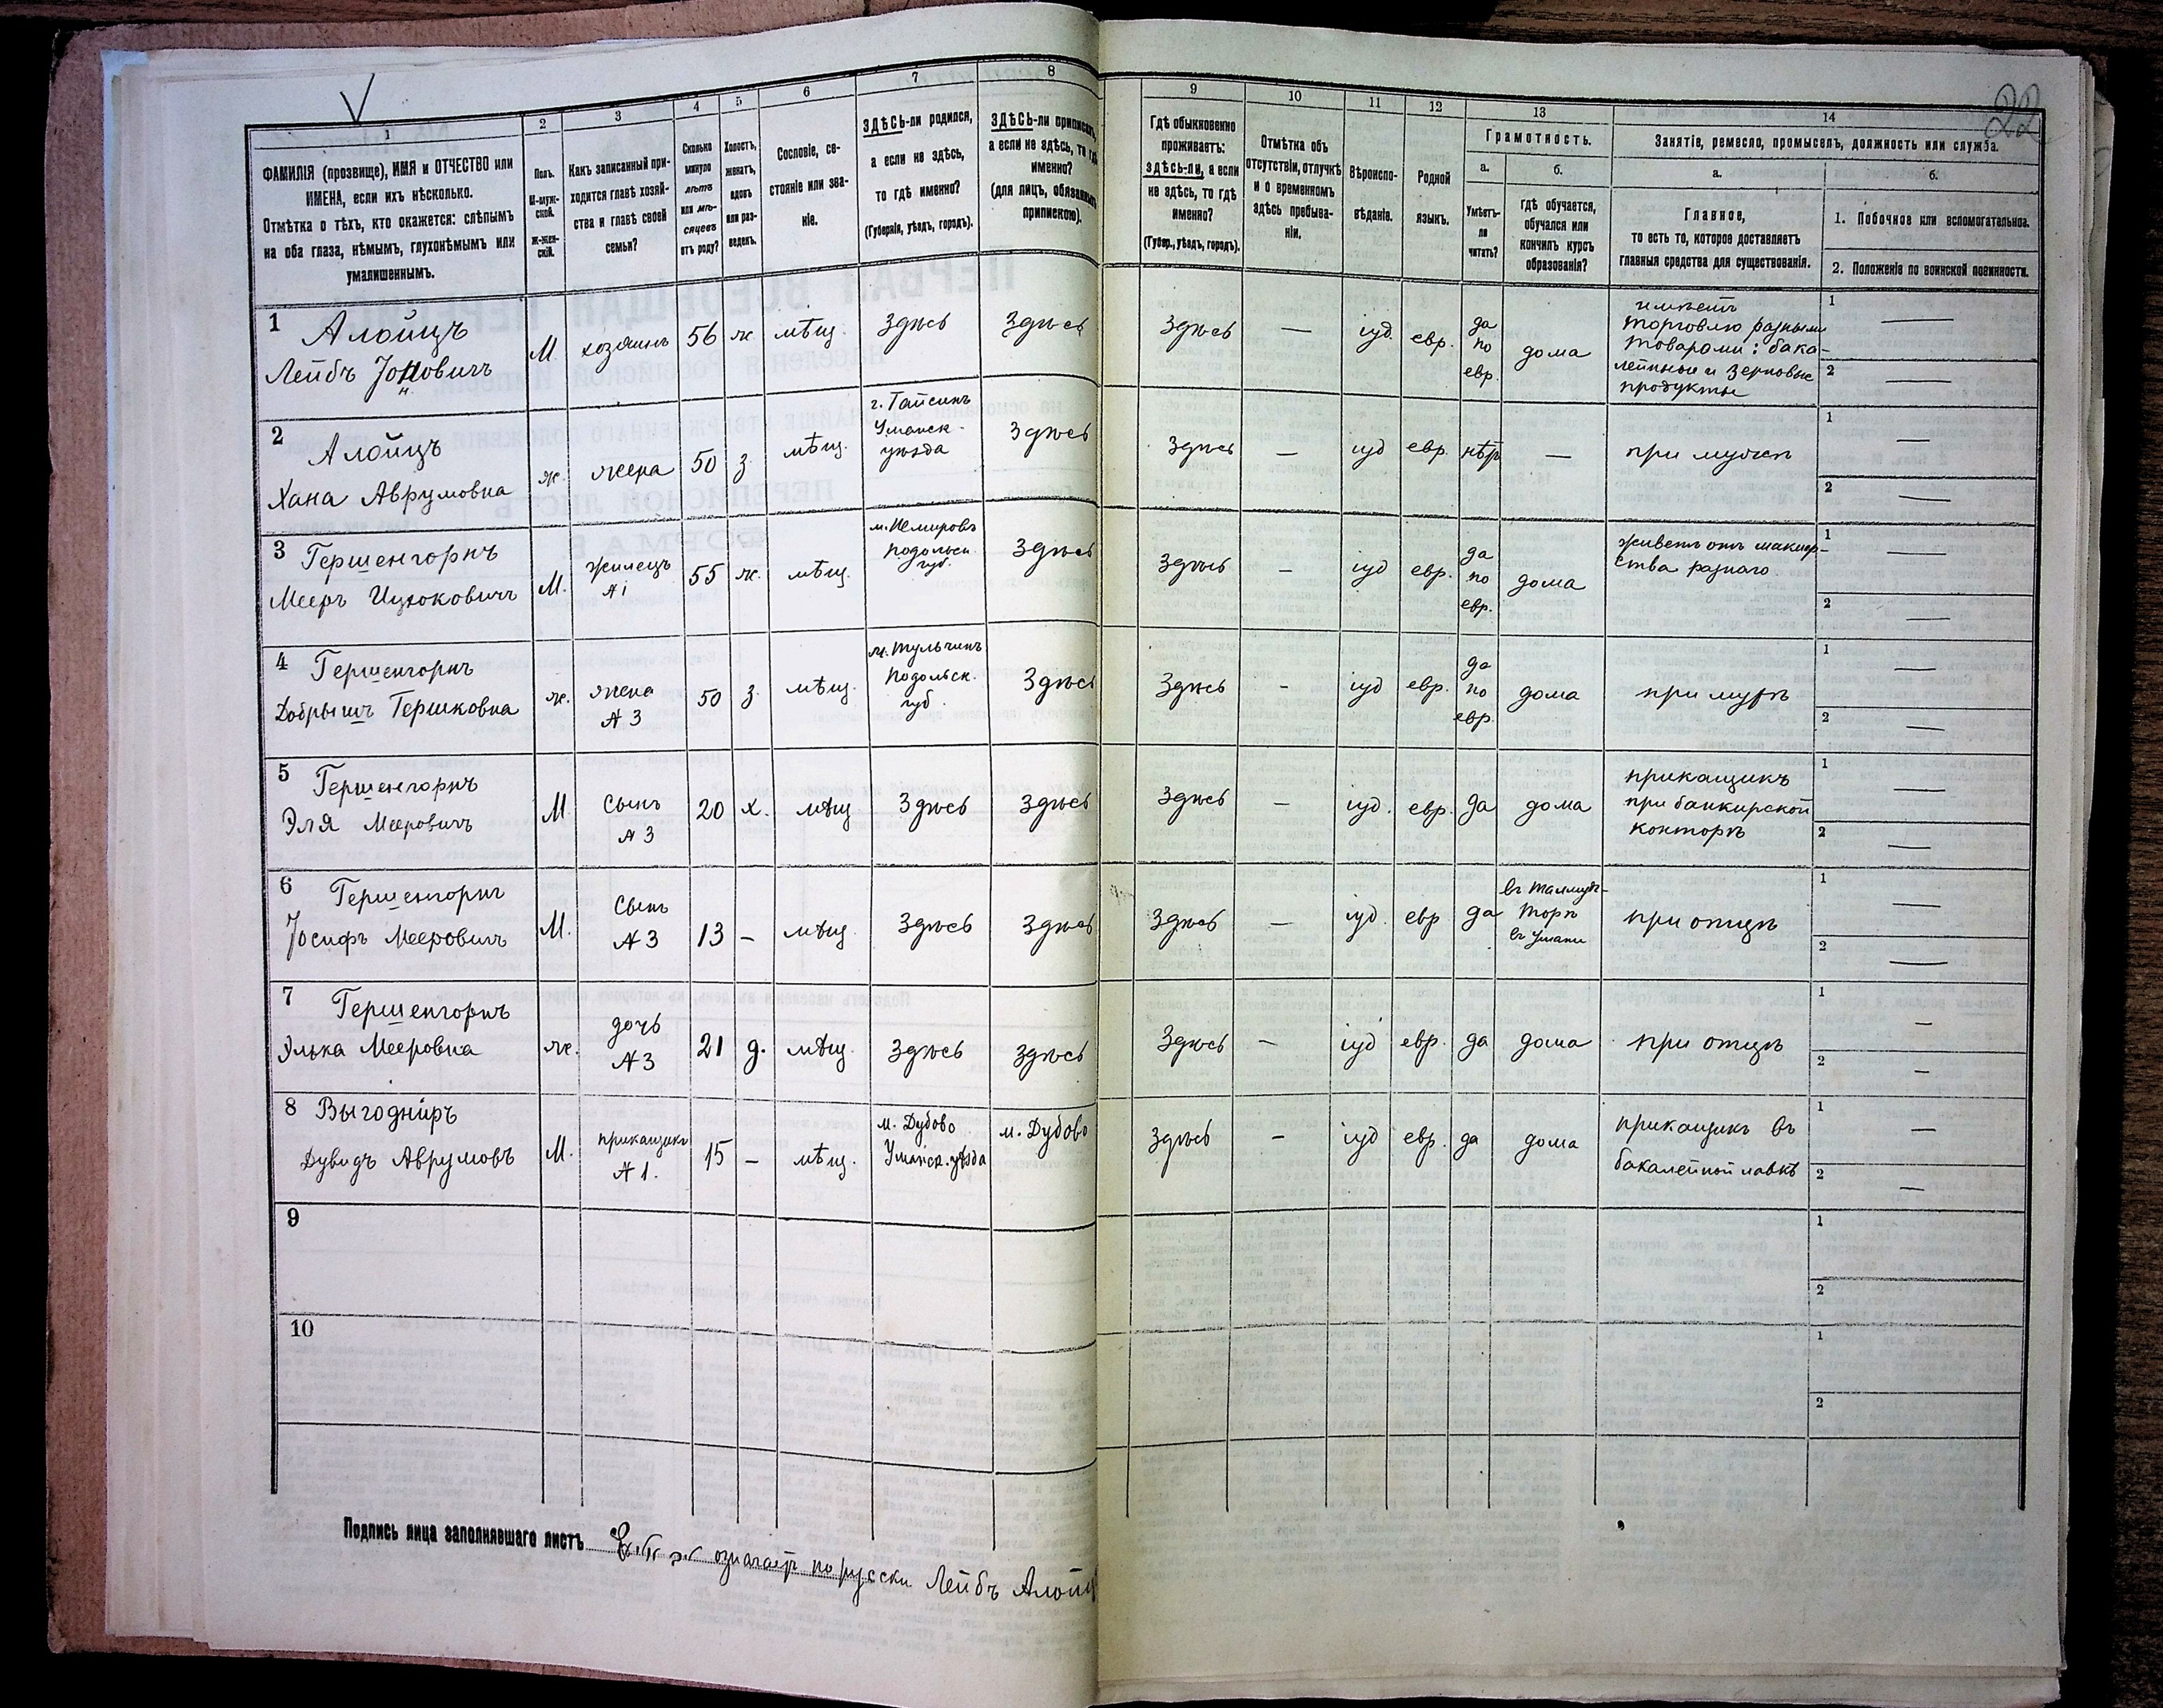 22
1
ФАМИЛІЯ (прозвище), ИМЯ и ОТЧЕСТВО или
ИМЕНА, если ихъ нѣсколько.
Отмѣтка о тѣхъ, кто окажется: слѣпымъ
на оба глаза, нѣмымъ, глухонѣмымъ или
умалишеннымъ.
2
Полъ.
М-муж-
ской.
Ж-жен-
скій.
3
Какъ записанный при-
ходится главѣ хозяй-
ства и главѣ своей
семьи?
4
Сколько
минуло
лѣтъ
или мѣ-
сяцевъ
отъ роду?
5
Холостъ,
женатъ,
вдовъ
или раз-
веденъ.
6
Сословіе, со-
стояніе или зва-
ніе.
7
ЗДѢСЬ-ли родился,
а если не здѣсь,
то гдѣ именно?
(Губернія, уѣздъ, городъ).
8
ЗДѢСЬ-ли приписанъ,
а если не здѣсь, то гдѣ
именно?
(для лицъ, обязанныхъ
припискою).
9
Гдѣ обыкновенно
проживаетъ:
здѣсь-ли, а если
не здѣсь, то гдѣ
именно?
(Губер., уѣздъ, городъ).
10
Отмѣтка объ
отсутствіи, отлучкѣ
и о временномъ
здѣсь пребыва-
ніи.
11
Вѣроиспо-
вѣданіе.
12
Родной
языкъ.
13
Грамотность.
а.
Умѣетъ-
ли
читать?
б.
гдѣ обучается,
обучался или
кончилъ курсъ
образованія?
14
Занятіе, ремесло, промыселъ, должность или служба.
а.
Главное,
то есть то, которое доставляетъ
главныя средства для существованія.
б.
1. Побочное или вспомогательное.
2. Положеніе по воинской повинности.
1
Алойцъ
Лейбъ
М.
хозяинъ
56
ж.
мѣщ.
Здѣсь
Здѣсь
Здѣсь
—
іуд.
евр.
да
по
евр.
дома
имѣетъ
торговлю разными
товарами: бака-
лейные и зерновые
продукты
1 —
2 —
2
Алойцъ
Хана Аврумовна
ж.
жена
50
з.
мѣщ.
г. Гайсинъ
Уманск.
уѣзда
Здѣсь
Здѣсь
—
іуд
евр.
нѣтъ
—
при мужѣ
1 —
2 —
3
Гершенгорнъ
Мееръ Ицковичъ
М.
жилецъ
№ 1
55
ж.
мѣщ.
м. Немировъ
Подольск.
губ.
Здѣсь
Здѣсь
—
іуд
евр.
да
по
евр.
дома
живетъ отъ маклер-
ства разнаго
1 —
2 —
4
Гершенгорнъ
Добрышъ Гершковна
ж.
жена
№ 3
50
з
мѣщ.
м. Тульчинъ
Подольск.
губ.
Здѣсь
Здѣсь
-
іуд
евр.
да
по
евр.
дома
при мужѣ
1 —
2 —
5
Гершенгорнъ
Эля Мееровичъ
М.
сынъ
№ 3
20
х.
мѣщ
Здѣсь
Здѣсь
Здѣсь
—
іуд.
евр.
да
дома
прикащикъ
при банкирской
конторѣ
1 —
2 —
6
Гершенгорнъ
Іосифъ Мееровичъ
М.
сынъ
№ 3
13
–
мѣщ.
Здѣсь
Здѣсь
Здѣсь
—
іуд.
евр
да
въ талмудъ-
торѣ
въ Умани
при отцѣ
1 —
2 —
7
Гершенгорнъ
Элька Мееровна
ж.
дочь
№ 3
21
д.
мѣщ.
Здѣсь
Здѣсь
Здѣсь
–
іуд
евр.
да
дома
при отцѣ
1 —
2 —
8
Выгоднiръ
Дувидъ Аврумовъ
М.
прикащикъ
№ 1.
15
–
мѣщ.
м. Дубово
Уманск. уѣзда
м. Дубово
Здѣсь
–
іуд
евр.
да
дома
прикащикъ въ
бакалейной лавкѣ
1 —
2 —
9
1
2
10
1
2
Подпись лица заполнявшаго листъ
означаетъ по русски Лейбъ Алойцъ